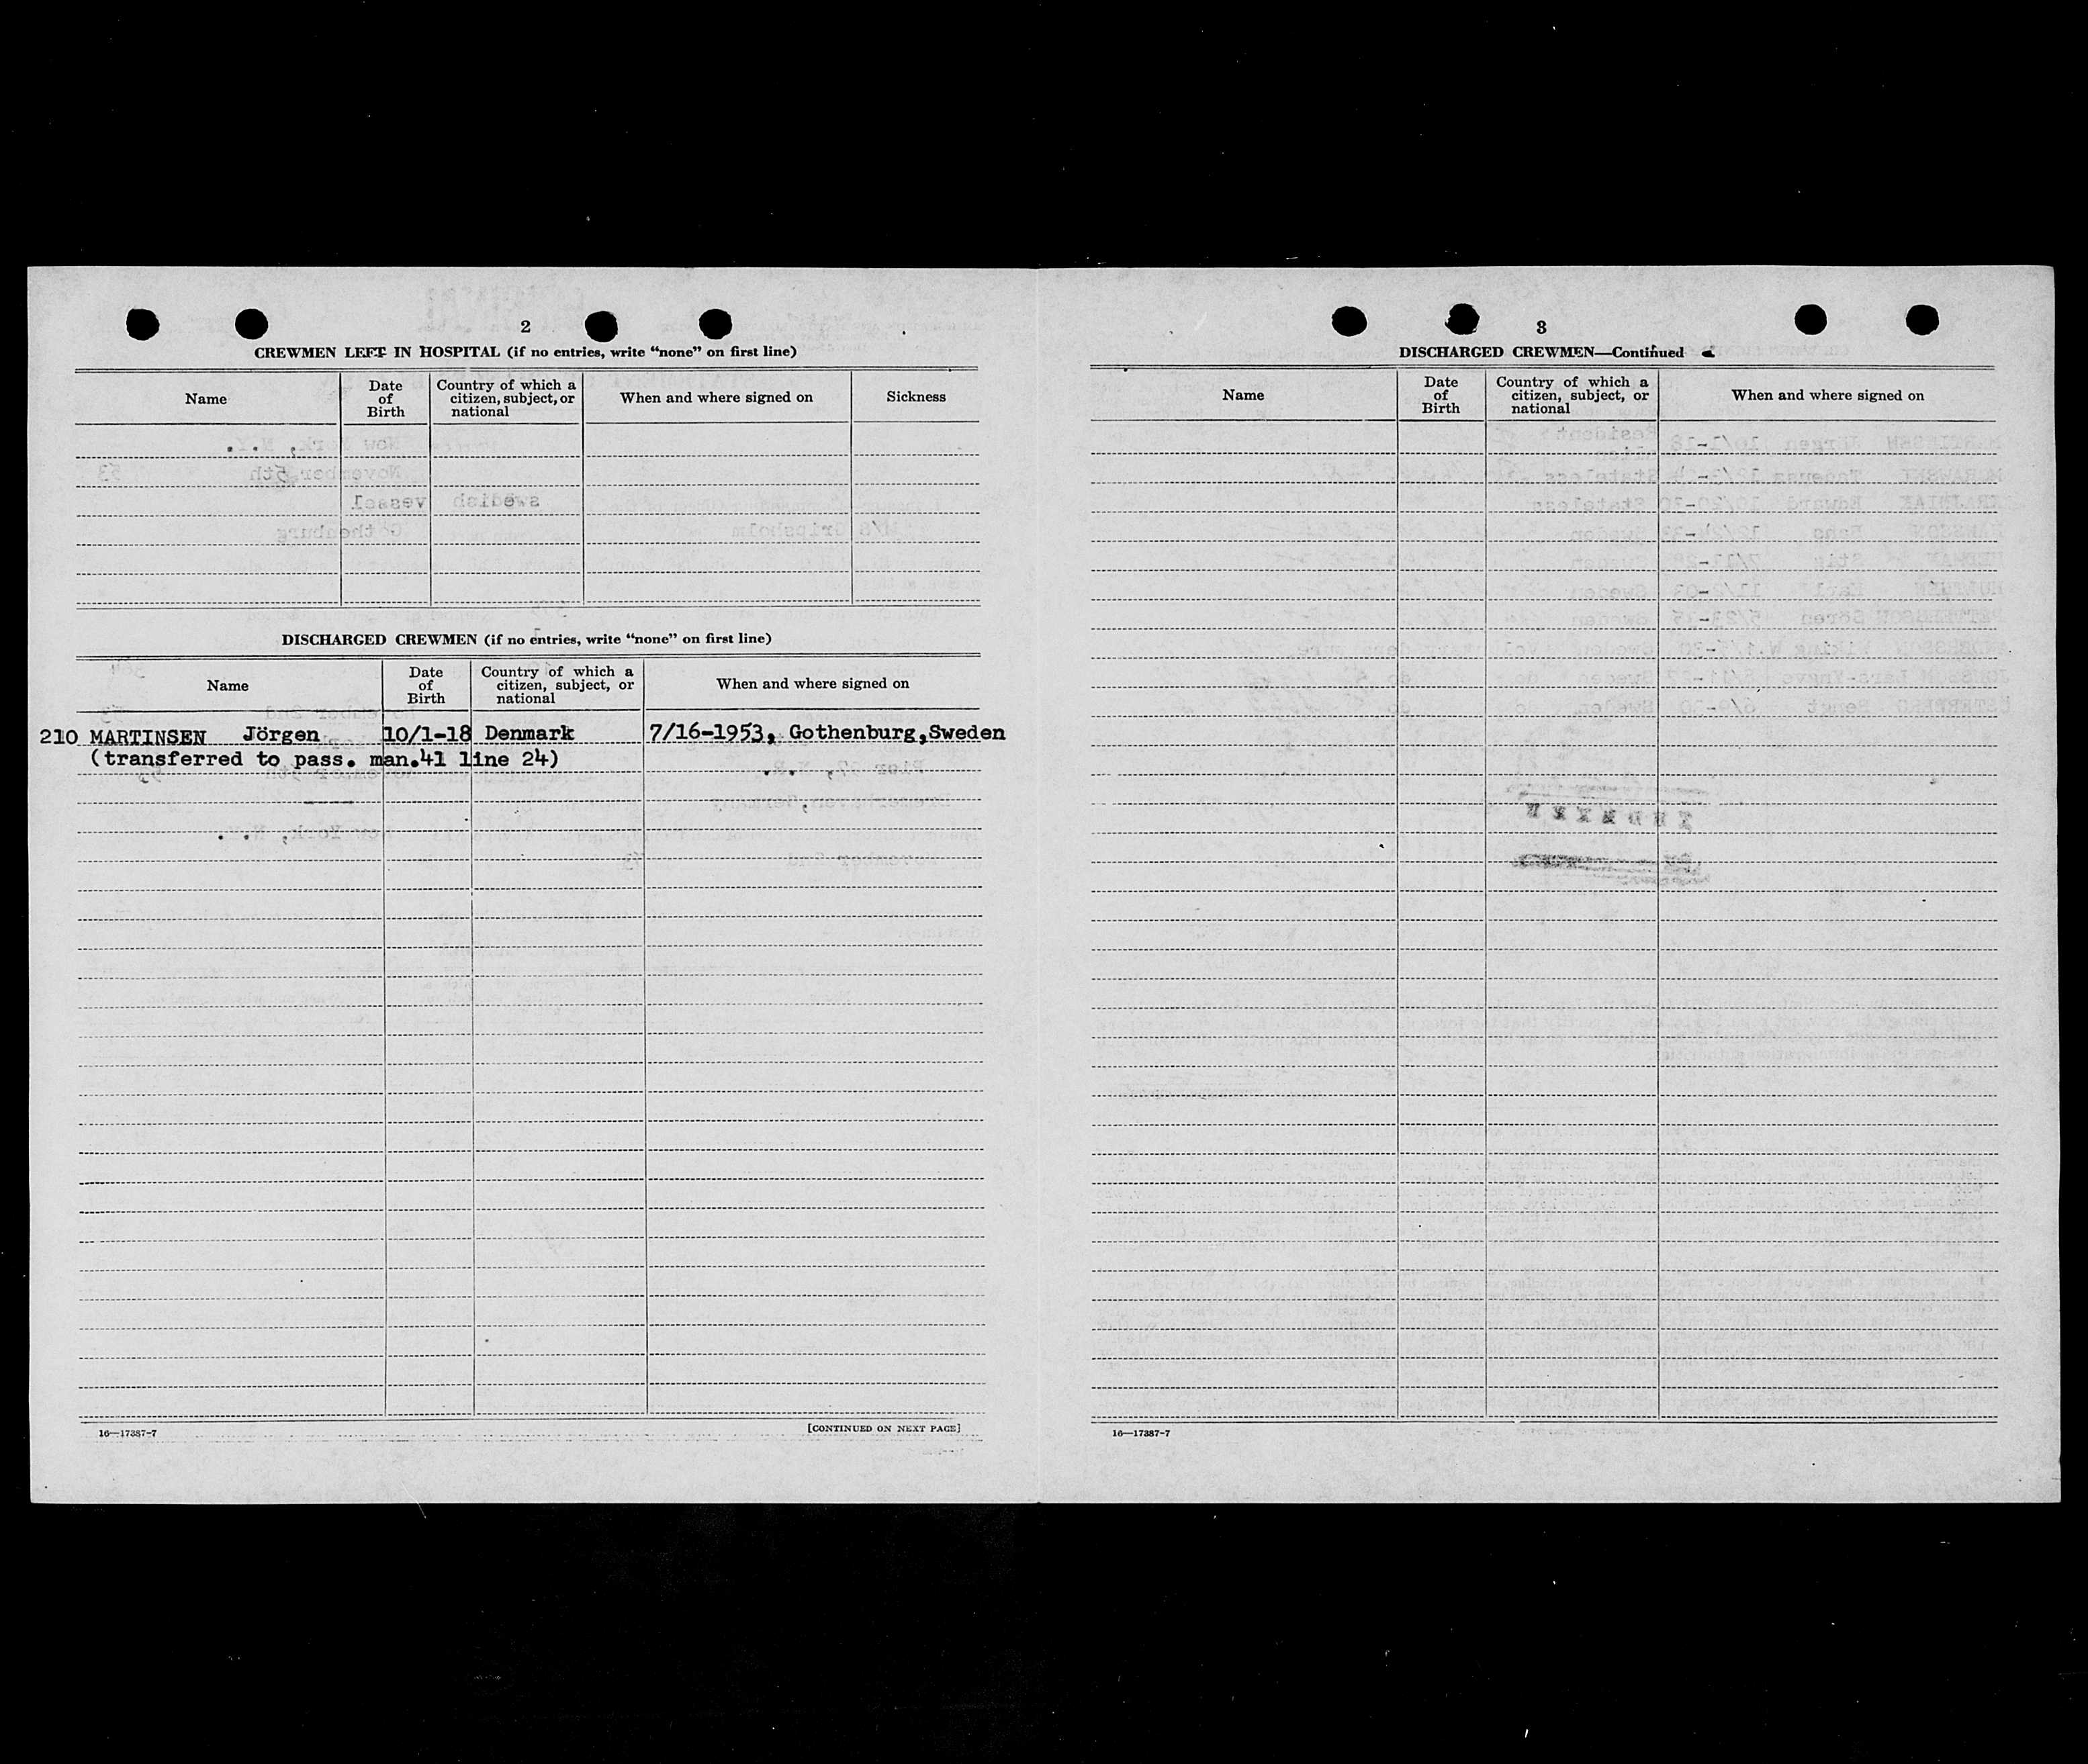 2
CREWMEN LEFT IN HOSPITAL (if no entries, write “none” on first line)
Name
Date of Birth
Country of which a citizen, subject, or national
When and where signed on
Sickness
DISCHARGED CREWMEN (if no entries, write “none” on first line)
Name
Date of Birth
Country of which a citizen, subject, or national
When and where signed on
210 MARTINSEN Jörgen 10/1-18 Denmark 7/16-1953, Gothenburg,Sweden
(transferred to pass. man.41 line 24)
16—17387-7
[CONTINUED ON NEXT PAGE]
3
DISCHARGED CREWMEN—Continued
Name
Date of Birth
Country of which a citizen, subject, or national
When and where signed on
16—17387-7